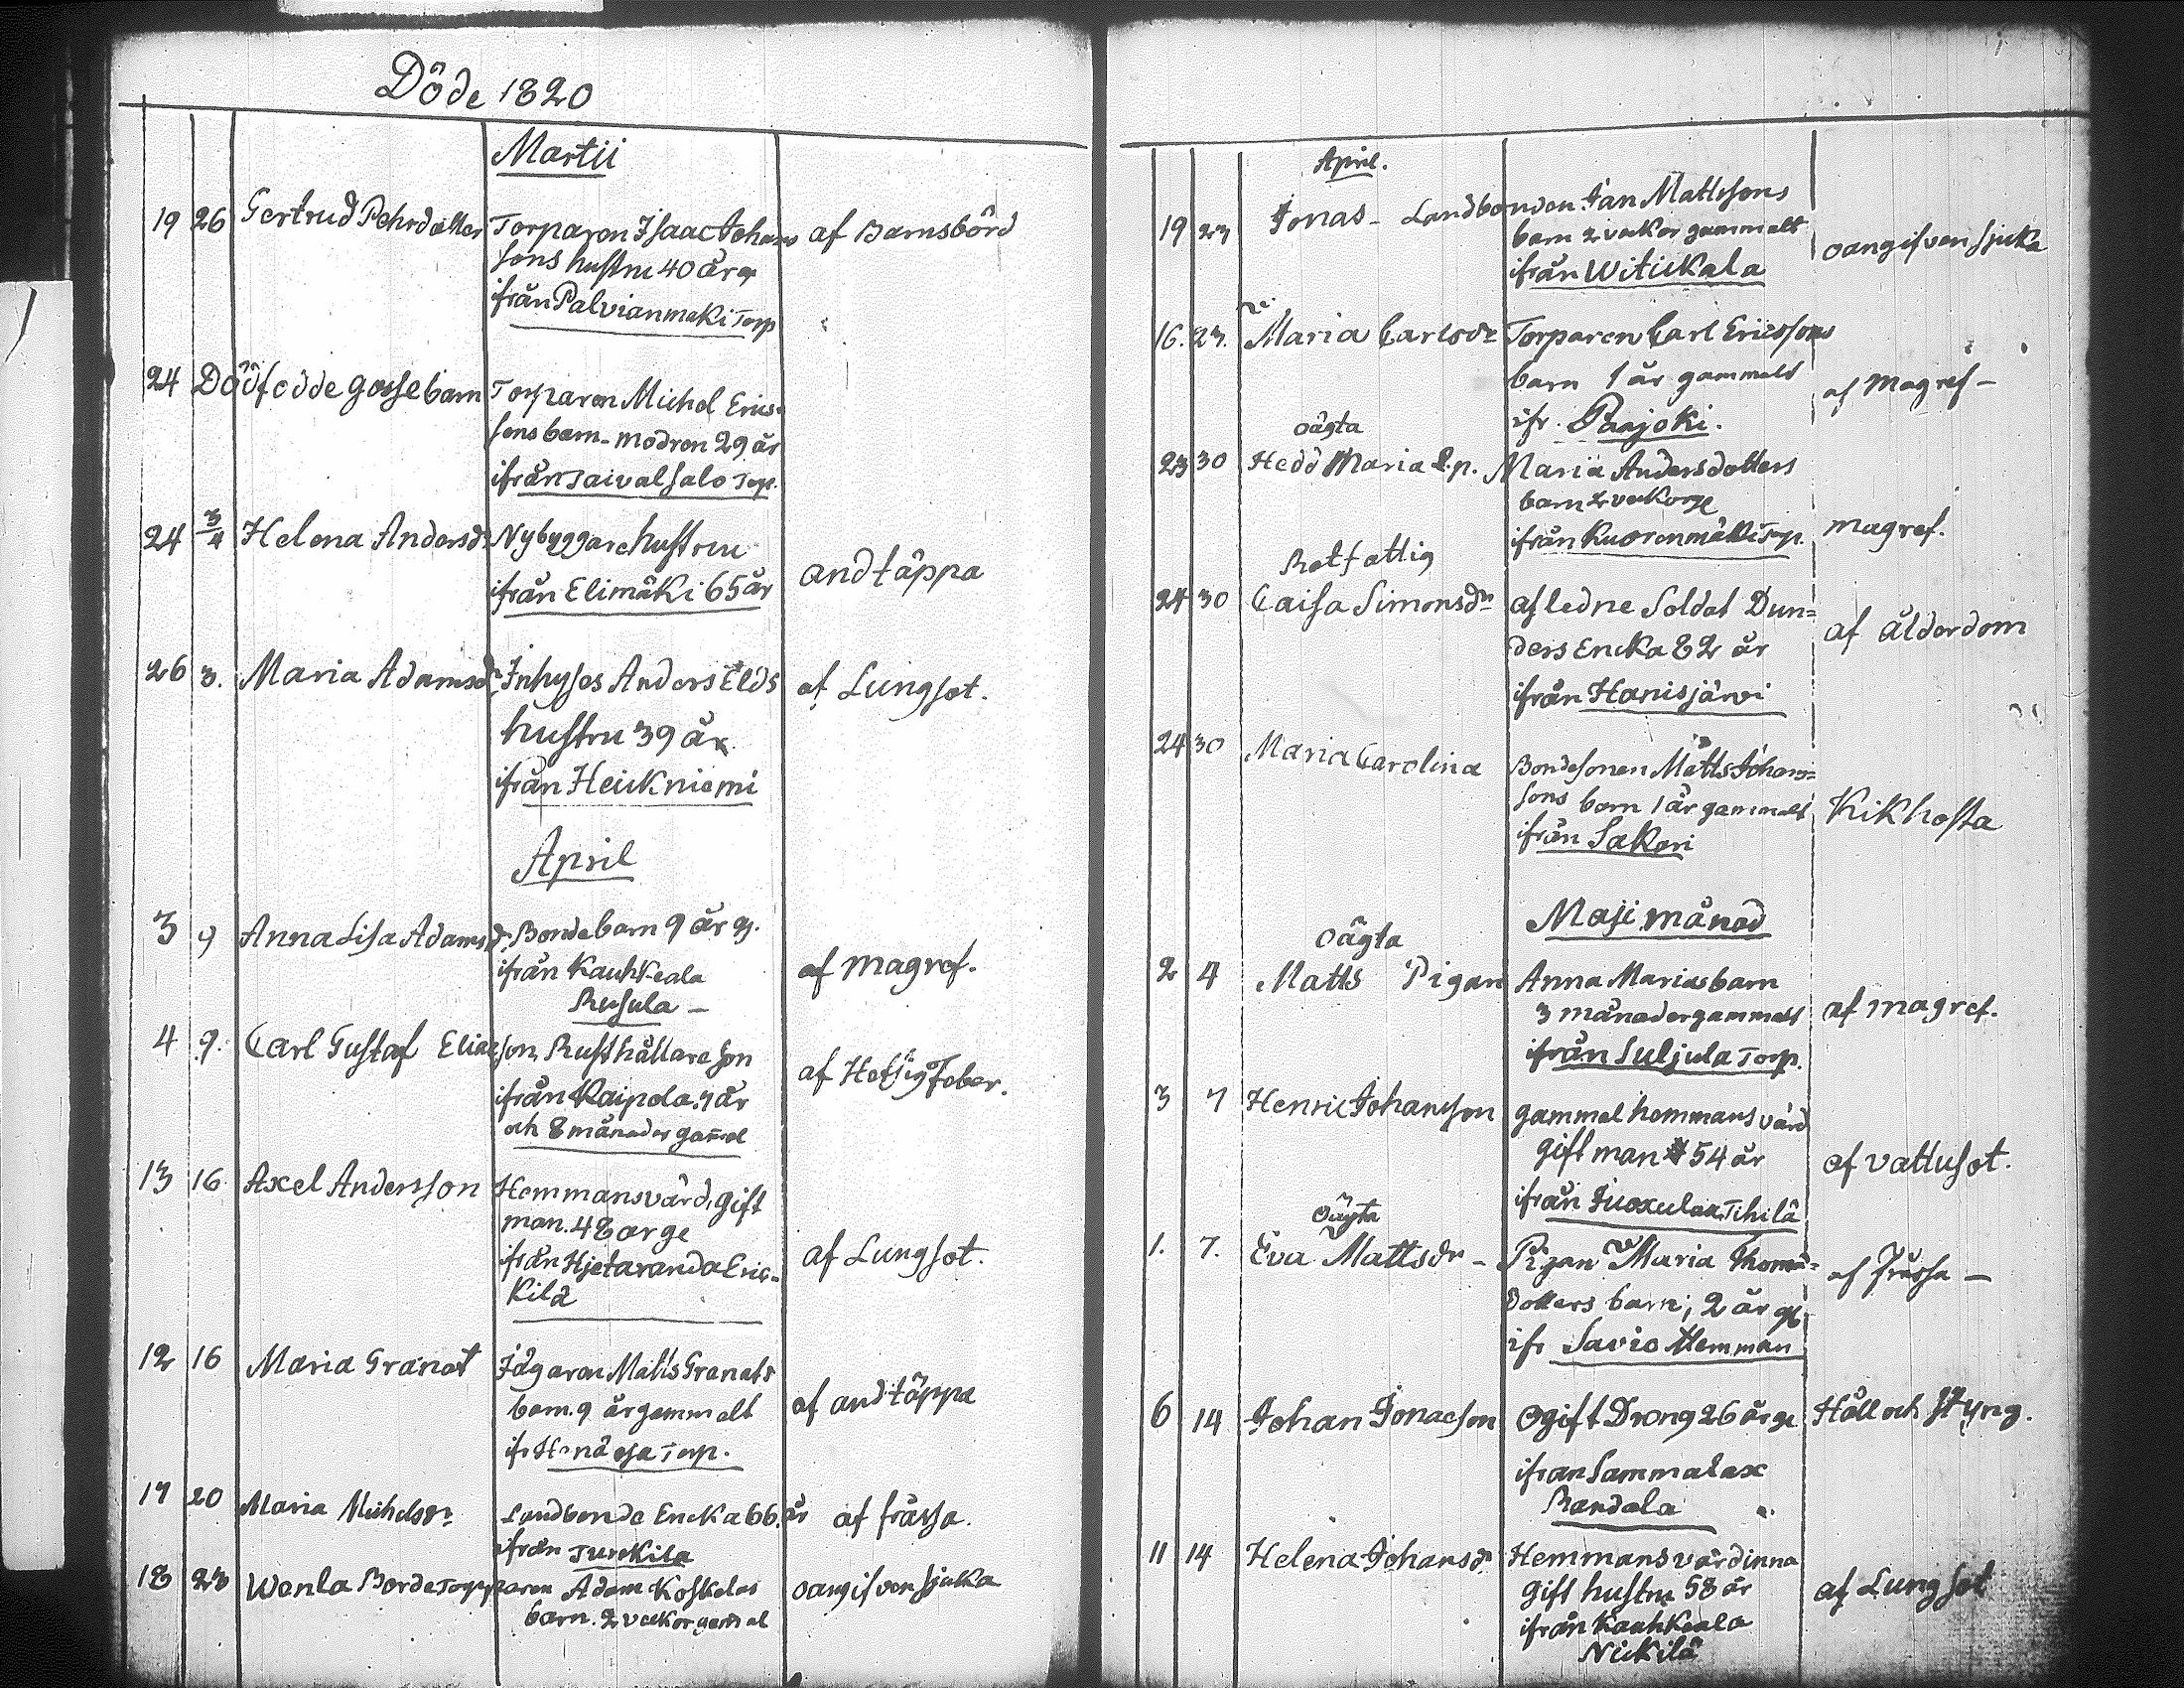 Döde 1820
Martii
19 26 Gertrud Pehrdotter Torparen Isaac Johans af Barnsbörd
sons hustru 40 år g
ifrån Palvianmäki Torp
24 Dödfödde gossebarn Torparen Michel Erics-
sons barn - modren 29 år
ifrån Taivalsalo Torp.
24 3/4 Helena Andersdr Nybyggare hustru andtäppa
ifrån Elimäki 65 år
26 3. Maria Adamsdr Inhyses Anders Elds af Lungsot.
hustru 39 år
ifrån Heickniemi
April
3 9 Anna Lisa Adamsdr. Bondebarn 9 år g. af magref.
ifrån Kauhkeala
Rusula -
4 9. Carl Gustaf Eliaeson Rusthållare son af Hetsig Feber.
ifrån Kaipola. 7 år
och 8 månader gamel
13 16 Axel Andersson Hemmansvärd, gift af Lungsot.
man. 48 år ge
ifrån Hjetaranda Eric-
kilä
12 16 Maria Granat Jägaren Matts Granats af andtäppa
barn. 9 år gammalt
ifr Torp.
17 20 Maria Michelsdr Landbonde Encka 66 år af frässa.
ifrån Turckila
18 23 Wenla Borde Torpparen Adam Koskelas oangifven sjuka
barn. 2 veckor gamal
April.
19 23 Jonas - Landbonden Jan Mattssons oangifven sjuka
barn 2 veckor gammalt
ifrån Witickala
16. 23. Maria Carlsdr Torparen Carl Ericssons af Magref -
barn 1 år gammalt
ifr. Paajoki.
oägta
23 30 Hedd Maria I.p. Maria Andersdotters magref.
barn 2 veckor ge
ifrån Kuorenmäki Torp.
Rotfattig
24 30 Caisa Simonsdr afledne Soldat Dun= af ålderdom
ders Encka 82 år
ifrån Hanisjärvi
24 30 Maria Carolina Bondesonen Matts Johans= Kikhosta
sons barn 1 år gammalt
ifrån Sakari
Maji månad
oägta
2 4 Matts Pigan Anna Marias barn af magref.
3 månader gammalt
ifrån Suljula Torp.
3 7 Henric Johansson gammal hemmans värd af vattusot.
gift man 54 år
ifrån Tihilä
Oägta
1. 7. Eva Mattsdr - Pigan Maria Thoma= af frässa -
dotters barn, 2 år g
ifr Savio Hemman
6 14 Johan Jonaeson Ogift Dräng 26 år ge Håll och styng.
ifrån Sammalax
Randala
11 14 Helena Johansdr Hemmansvärdinna af Lungsot
gift hustru 58 år
ifrån Kauhkeala
Nickilä